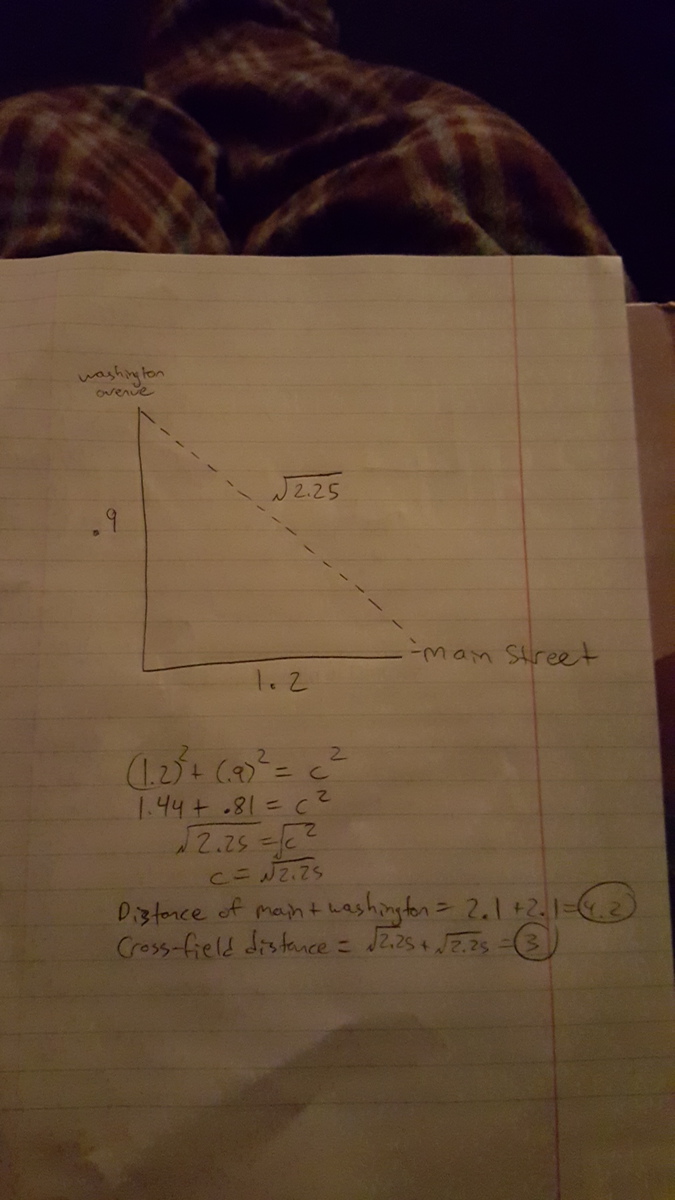 washington
avenue
√2.25
.9
main street
1.2
(1.2)² + (.9)² = c²
1.44 + .81 = c²
√2.25 = √c²
c = √2.25
Distance of main + washington = 2.1 + 2.1 = 4.2
Cross-field distance = √2.25 + √2.25 = 3